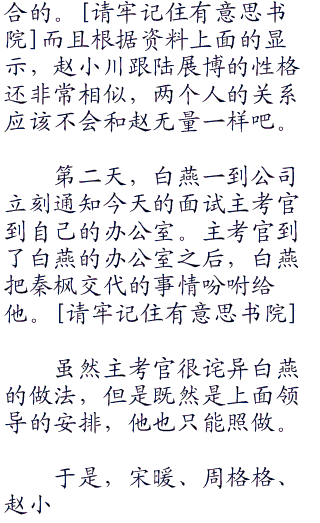 合的。[请牢记住有意思书
院]而且根据资料上面的显
示，赵小川跟陆展博的性格
还非常相似，两个人的关系
应该不会和赵无量一样吧。
第二天，白燕一到公司
立刻通知今天的面试主考官
到自己的办公室。主考官到
了白燕的办公室之后，白燕
把秦枫交代的事情吩咐给
他。[请牢记住有意思书院]
虽然主考官很诧异白燕
的做法，但是既然是上面领
导的安排，他也只能照做。
于是，宋暖、周格格、
赵小